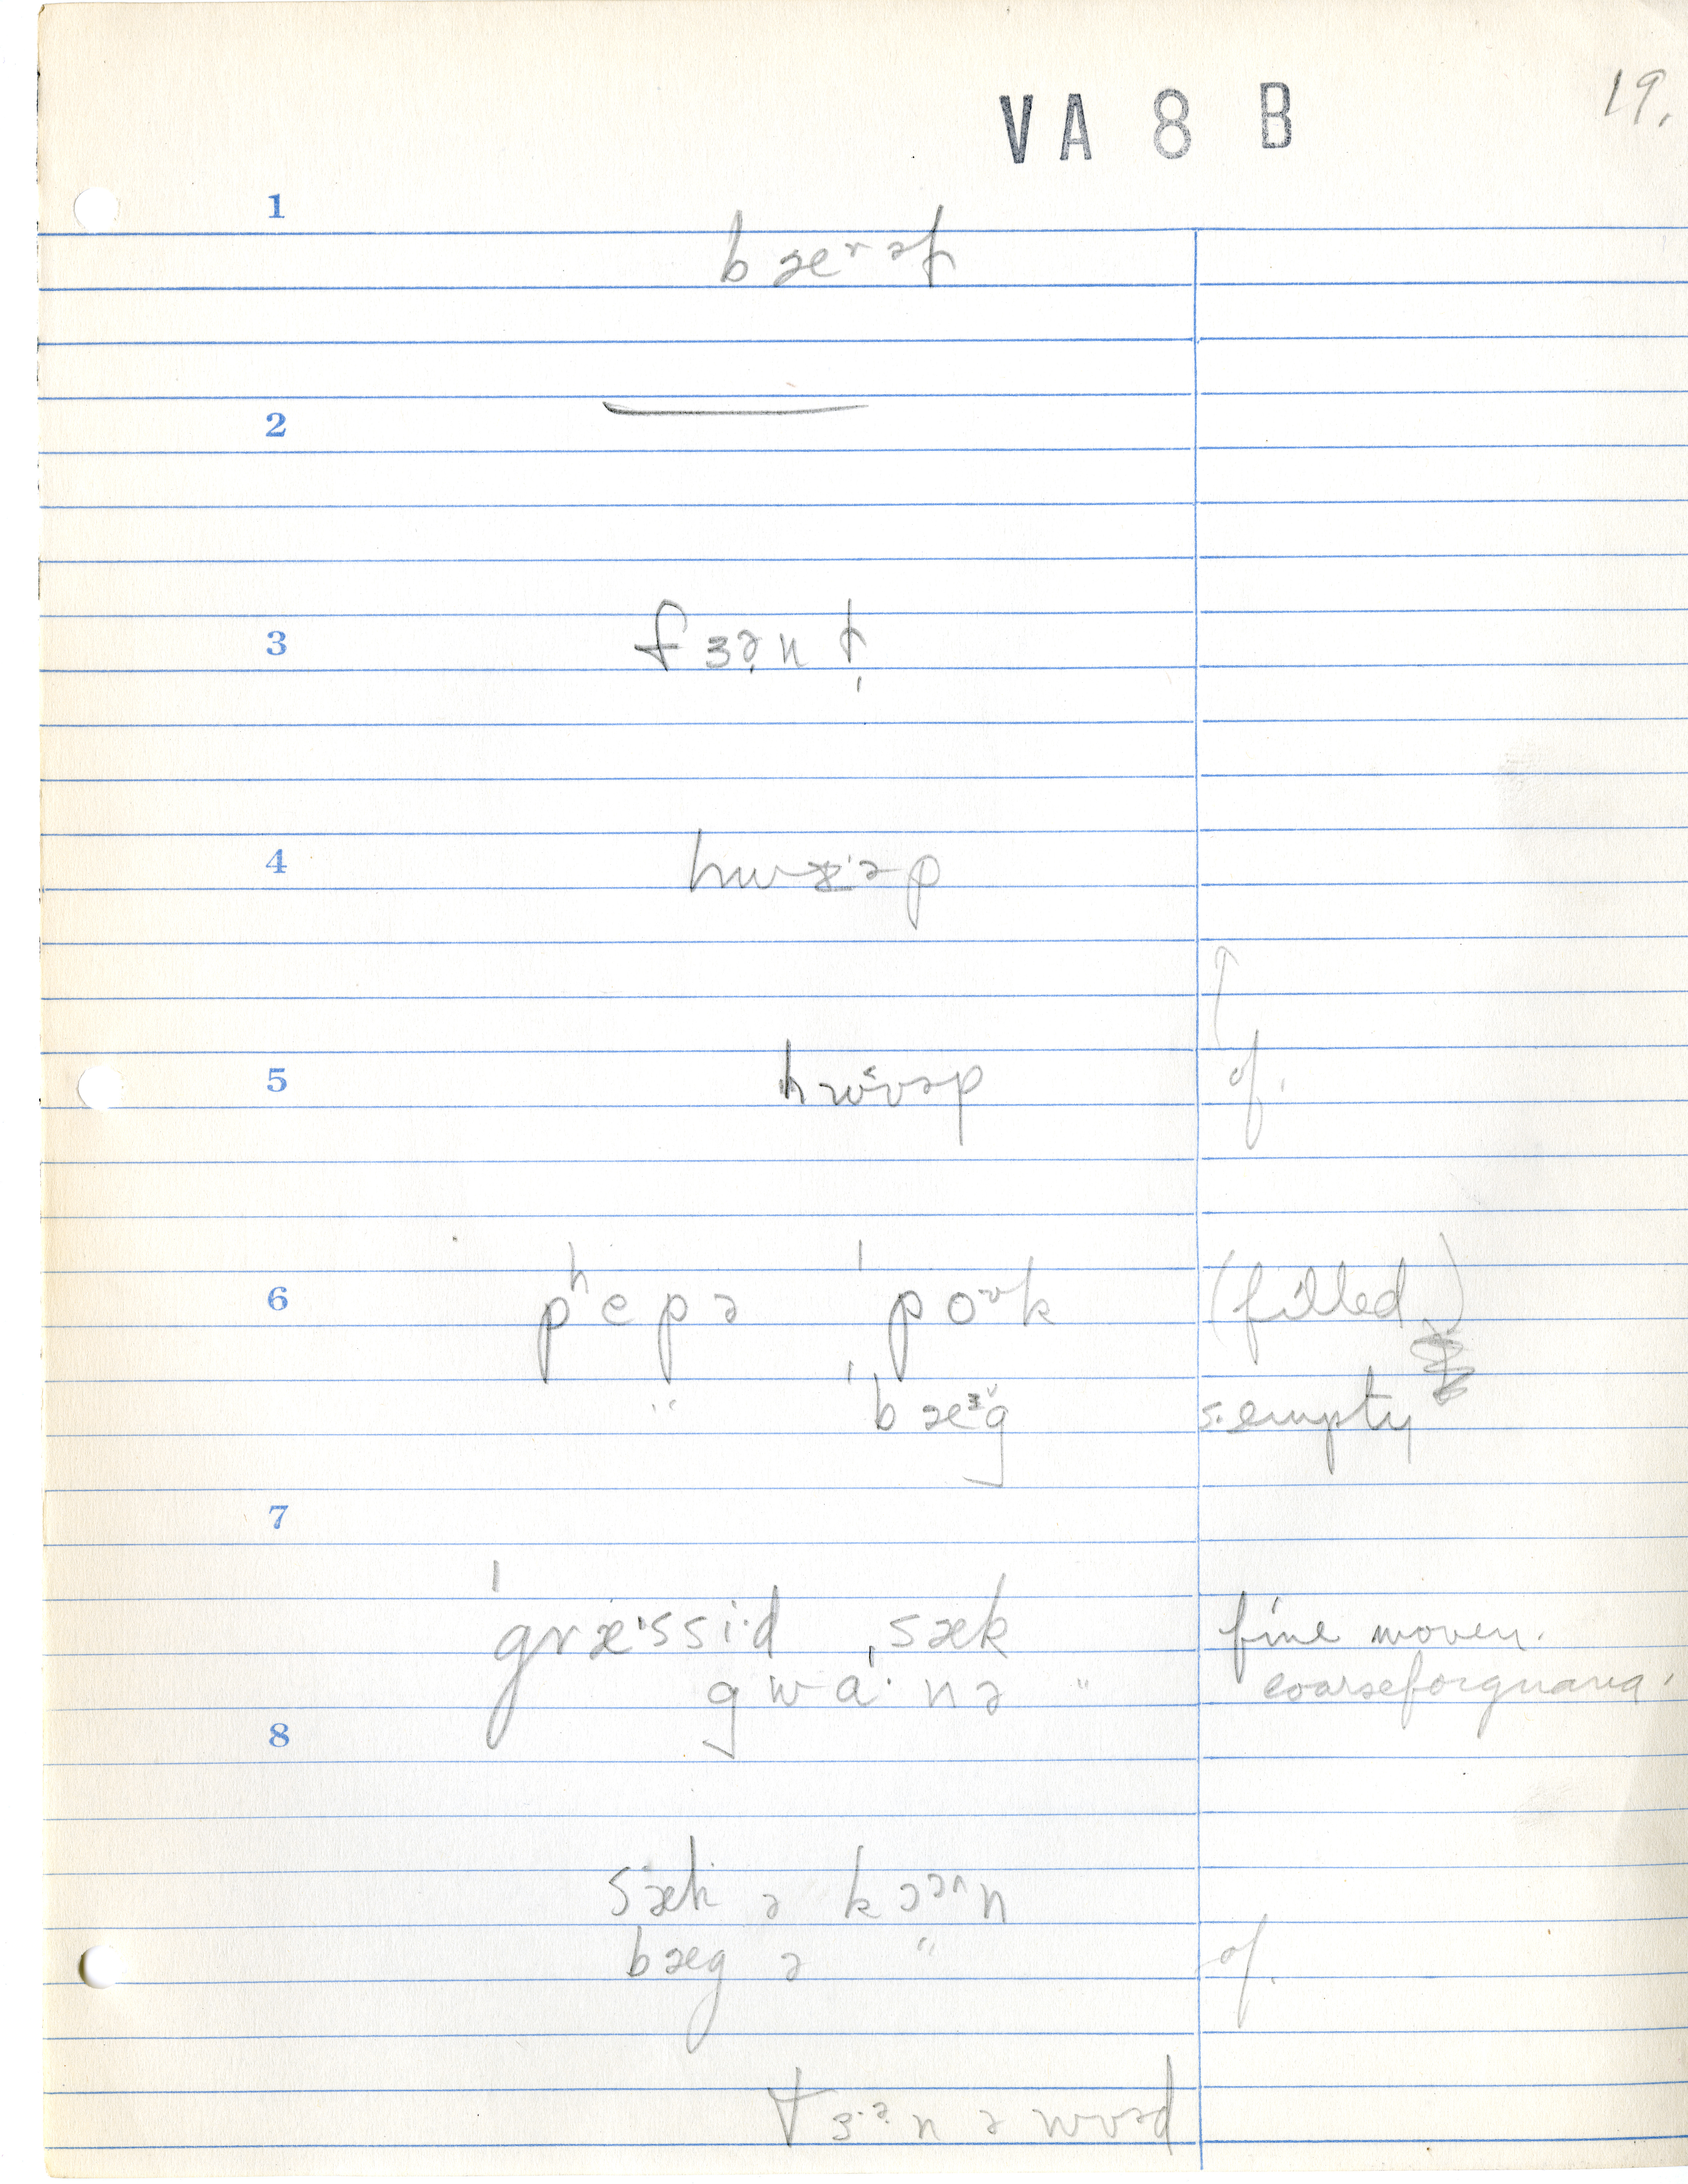 VA 8 B
19.
1
bæʳəɫ
2
3
fɜə̣nɫ̩
4
hwæ̱·əp
5
hwᵋʊəp of.
6
pʰepə ˈpoᵊʊk (filled)
" ˈbæᶾg s. empty
7
ˈgræ·ssi·d ˌsæk fine woven.
gwɑ·nə " coarse for guana.
8
sæk ə kɔᵊʳn
bæg ə " of.
tɜ·ᵊn ə wʊəd